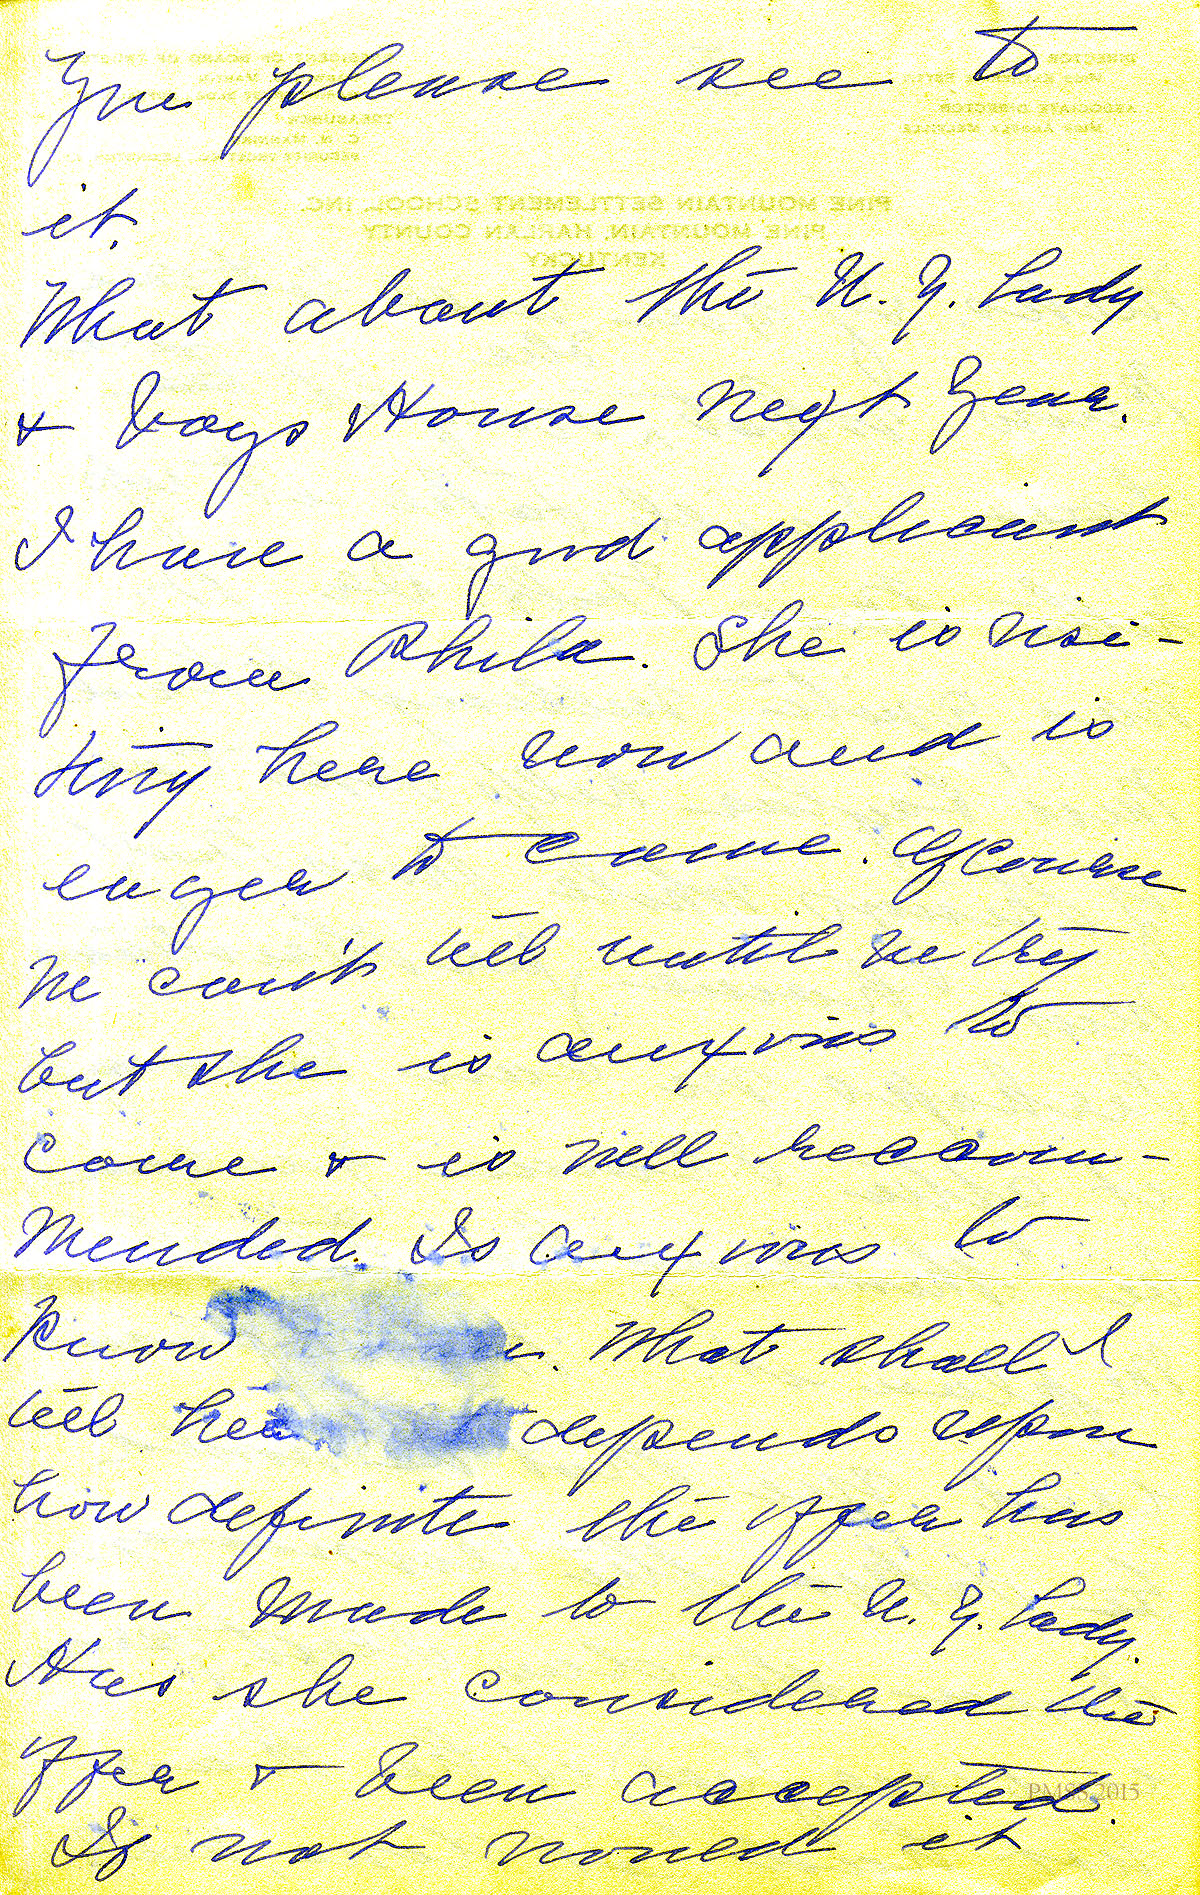 you please see to
it.
What about the N. Y. Lady
& Boys House next year.
I have a good applicant
from Phila. She is visi-
ting here now and is
eager to come. Of course
we can't tell until we try
but she is anxious to
come & is well recom-
mended. Is anxious to
know What shall I
tell her depends upon
how definite the offer has
been made to the N. Y. Lady.
Has she considered the
offer & been accepted.
If not would it
PINE MOUNTAIN SETTLEMENT SCHOOL, INC.
PINE MOUNTAIN, HARLAN COUNTY
KENTUCKY
DIRECTOR
ASSOCIATE DIRECTOR
MISS ANGELA MELVILLE
TREASURER
C. N. MANNING
PMSS 2015